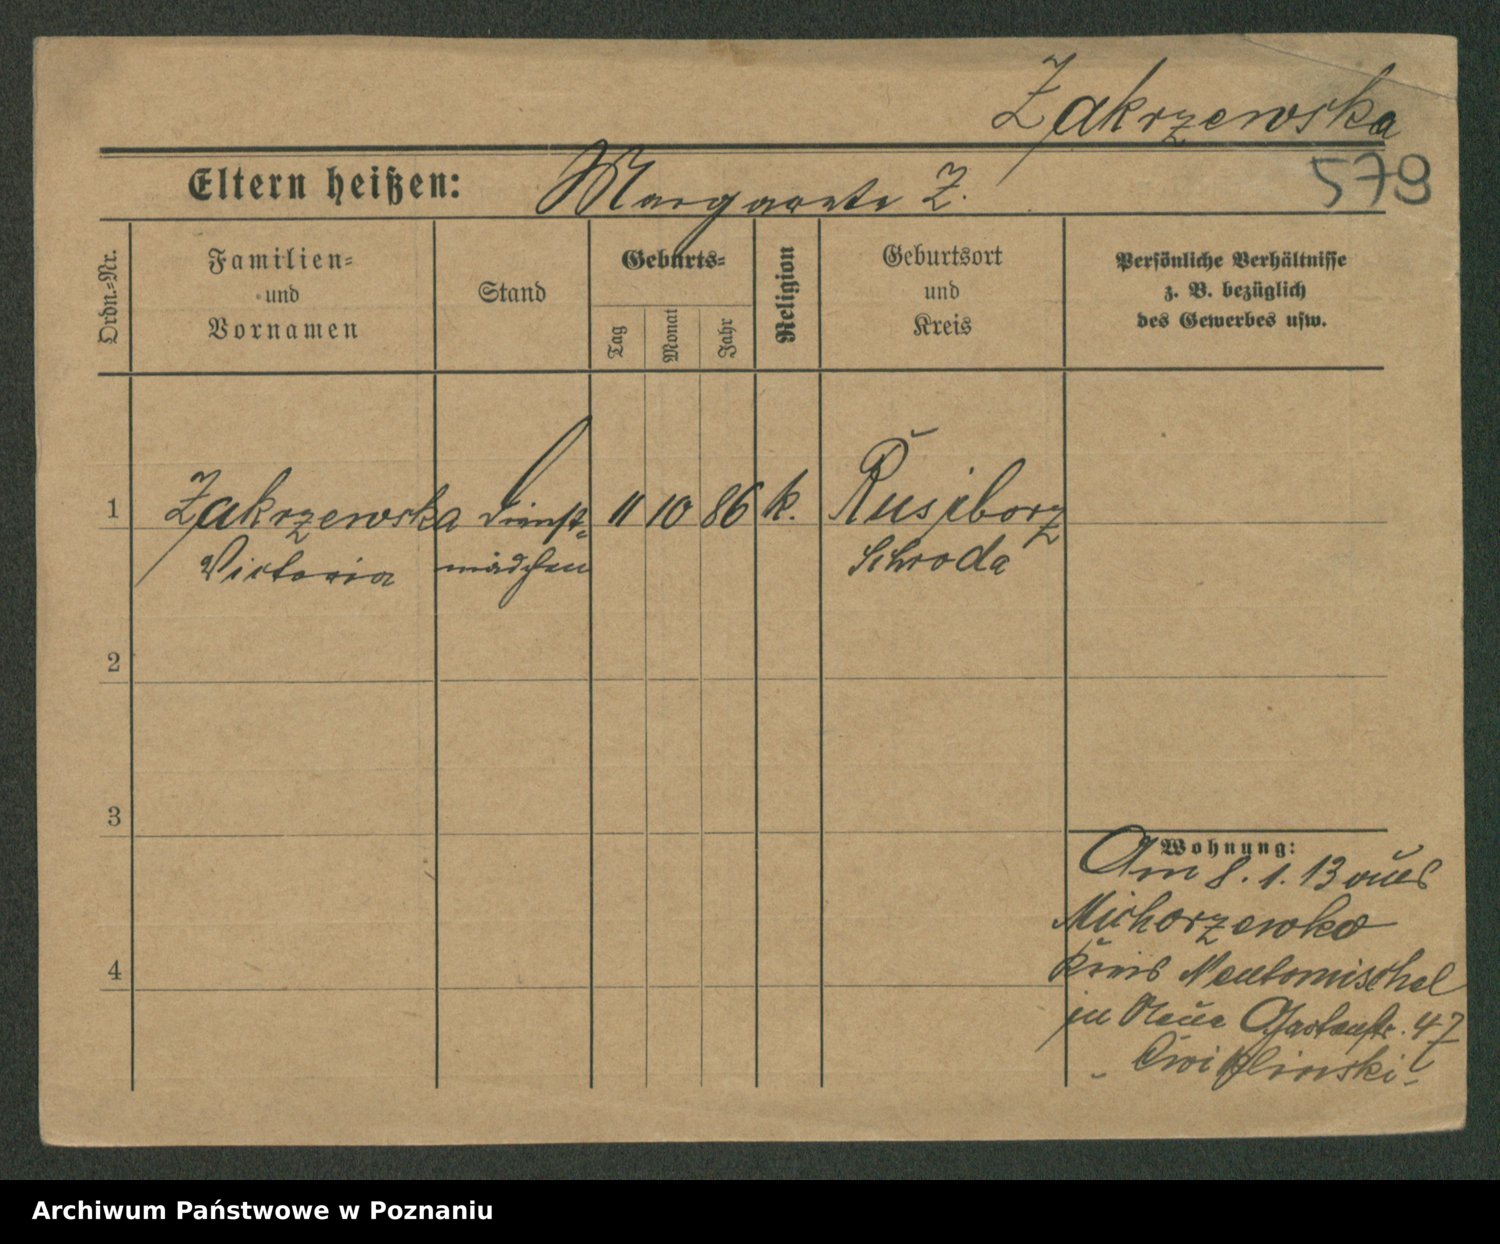 Zakrzewska
Eltern heißen: Margarete Z. 579
Ordn.-Nr.
Familien-
und
Vornamen
Stand
Geburts-
Tag
Monat
Jahr
Religion
Geburtsort
und
Kreis
Persönliche Verhältnisse
z. B. bezüglich
des Gewerbes usw.
1 Zakrzewska Dienst- 11 10 86 k. Rusiborz
Victoria mädchen Schroda
2
3
Wohnung:
Am 8. 1. 13 aus
Michorzewko
4
Kreis Neutomischel
zu Neue Gartenstr. 47
Archiwum Państwowe w Poznaniu